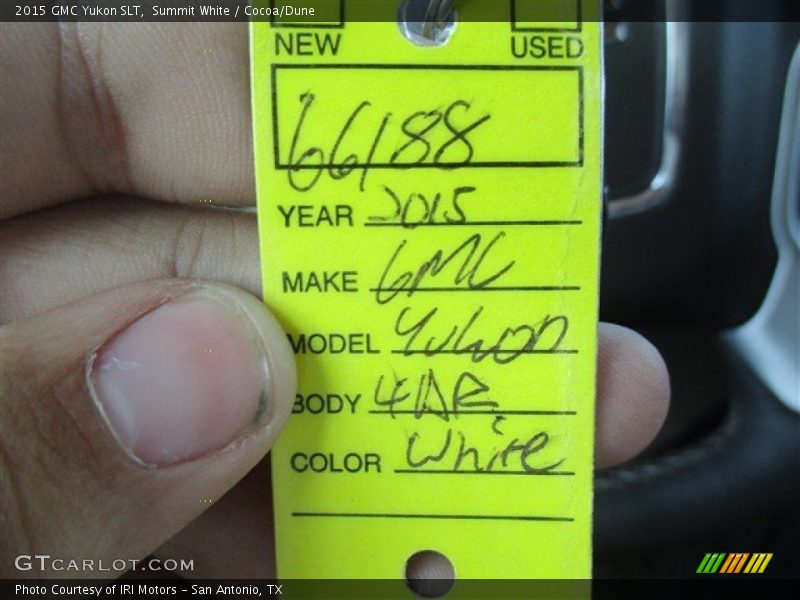 2015 GMC Yukon SLT, Summit White / Cocoa/Dune
NEW USED
66188
YEAR 2015
MAKE GMC
MODEL Yukon
BODY 4DR
COLOR White
GTCARLOT.COM
Photo Courtesy of IRI Motors - San Antonio, TX